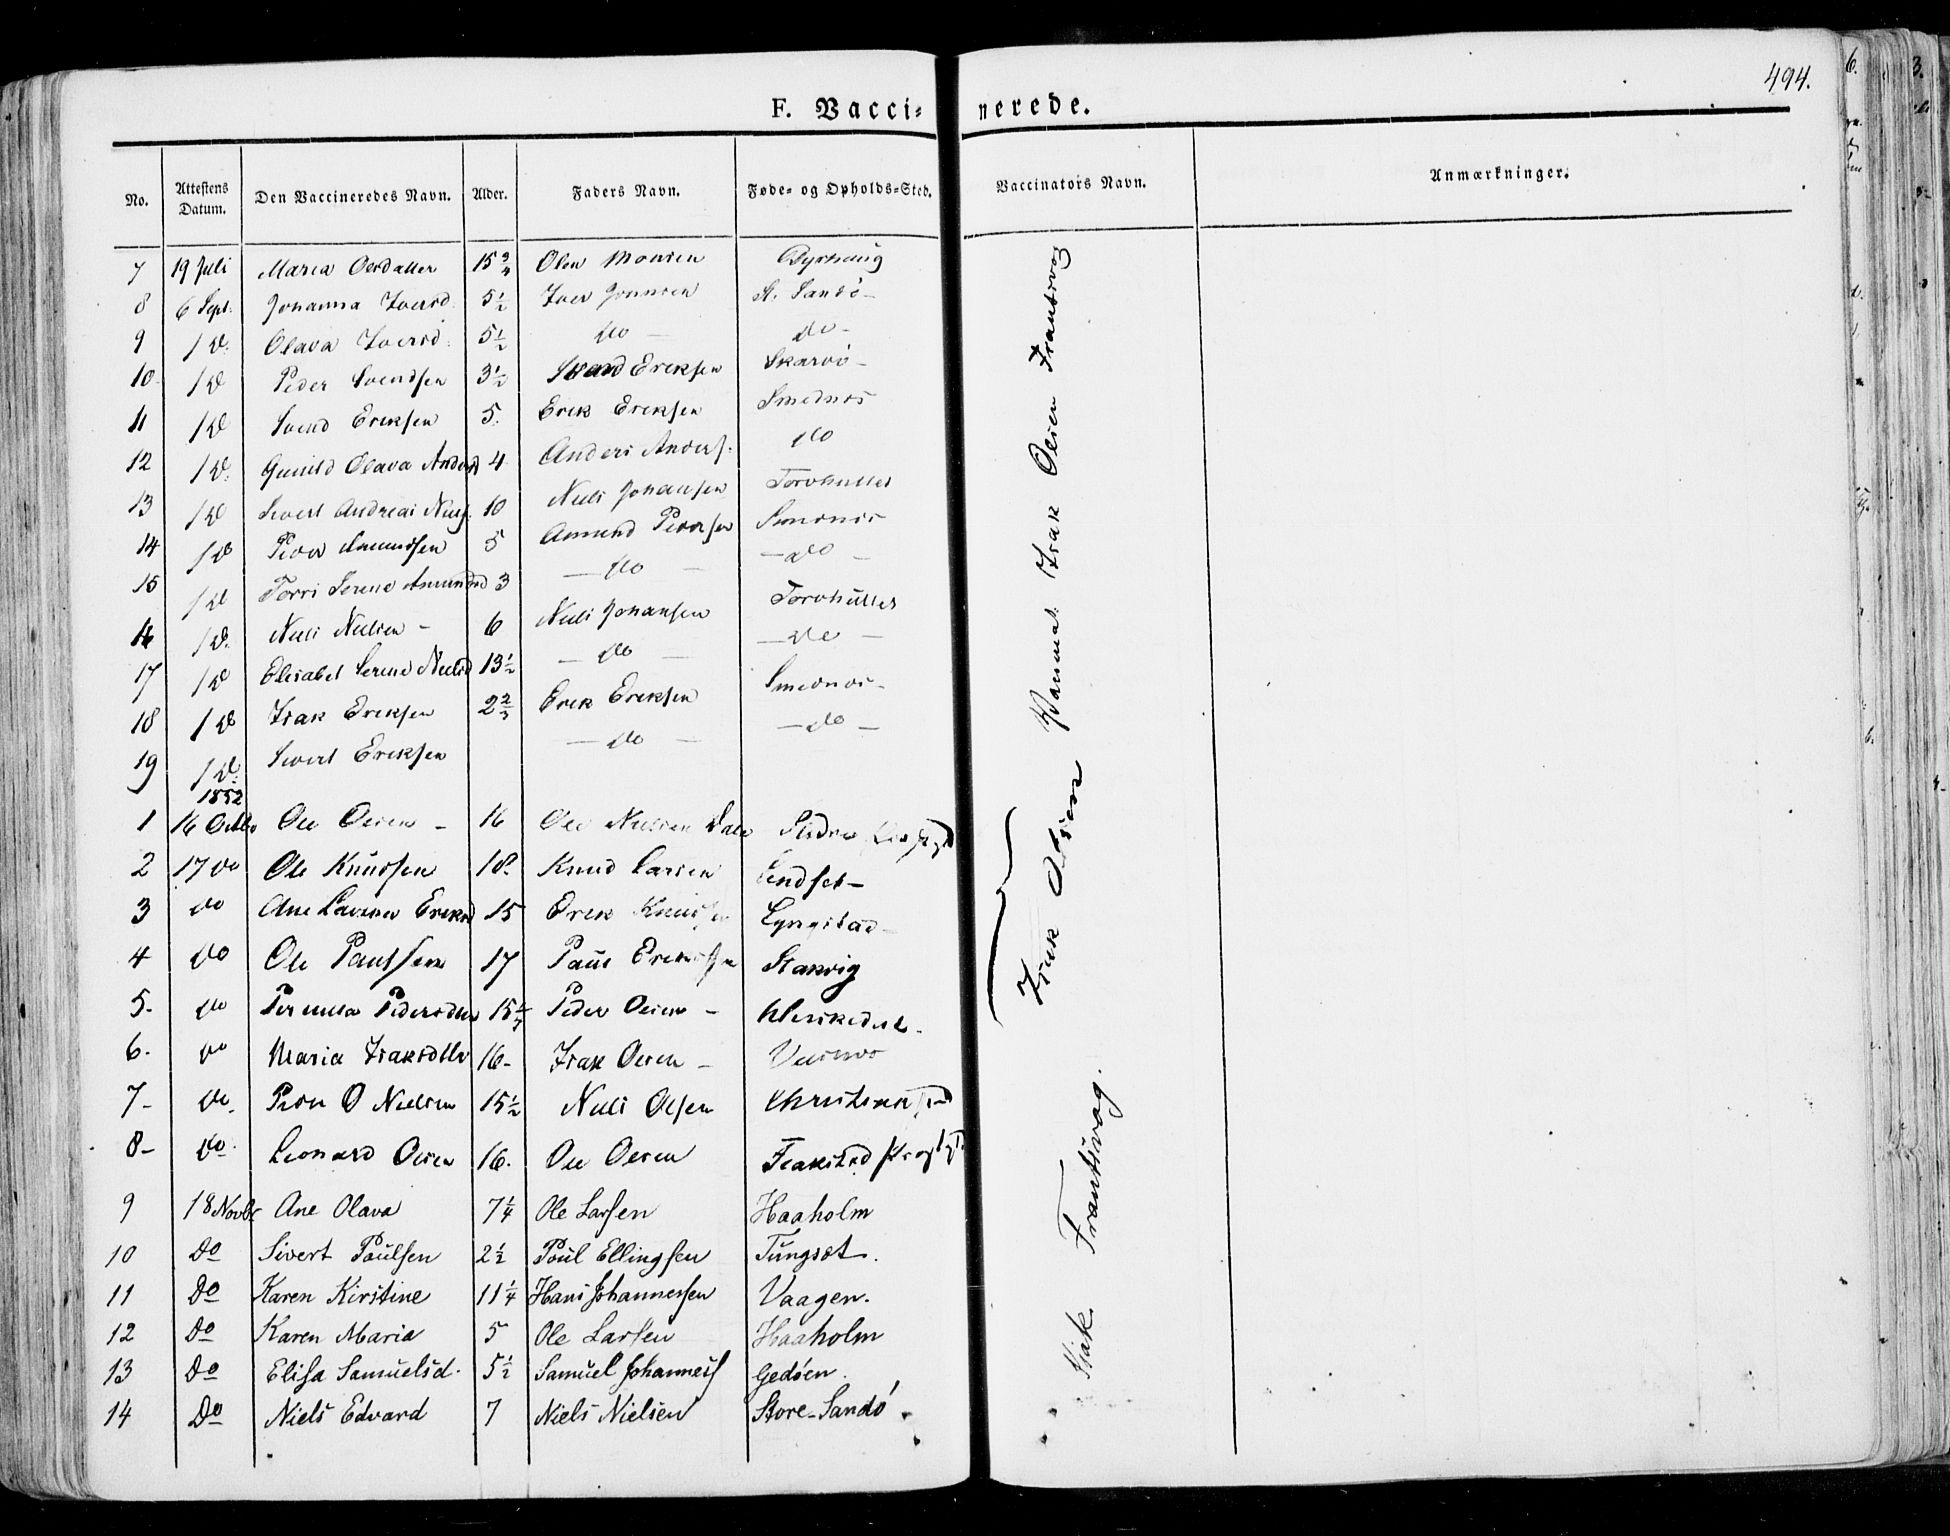 494.
F. Vaccinerede.
No. Attestens Datum. Den Vaccineredes Navn. Alder. Faders Navn. Føde- og Opholds-Sted. Vaccinators Navn. Anmærkninger.
7 19 Juli Maria Olesdatter 15 3/4 Olen Monsen Dyrhaug
8 6 Sept. Johanna Iversd. 5 1/2 Iver Johnsen St. Sandö
9 1 D. Olava Iversd. 5 1/2 do do
10 1 D Peder Svendsen 3 1/2 Svend Eriksen Skarvö
11 1 D Svend Eriksen 5. Erik Eriksen Smednes
12 1 D. Gunild Olava Andersd 4 Anders Anders. do
13 1 D Sivert Andreas Niels. 10 Niels Johansen Torvhullet
14 1 D Peder Amundsen 5 Amund Pedersen Smednes
15 1 D Torri Serene Amundsd 3 do do
16 1 D. Niels Nielsen 6 Niels Johansen Torvhullet
17 1 D Elisabet Serene Nielsd 13 1/2 do do
18 1 D Isak Eriksen 2 2/3 Erik Eriksen Smednes
19 1 D. Sivert Eriksen do do
1852
1 16 Octbr Ole Olsen 16 Ole Nielsen Dale
2 17 do Ole Knudsen 18. Knud Larsen Endset
3 do Ane Eriksd 15 Erik Knudsen Lyngstad
4 do Ole Paulsen 17 Paul Eriksen Stakvig
5. do Pernilla Pedersdtr 15 Peder Olsen
6. do Maria Isaksdttr 16 Isak Olsen
7 do. Peder O Nielsen 15 1/2 Niels Olsen Christiansund
8 do. Leonard Olsen 16. Ole Olsen
9 18 Novbr Ane Olava 7 1/4 Ole Larsen Haaholm
10 Do Sivert Poulsen 2 1/2 Poul Ellingsen Tungset.
11 Do Karen Kirstine 11 1/4 Hans Johannessen Vaagen.
12 Do Karen Maria 5 Ole Larsen Haaholm
13 Do Elisa Samuelsd. 5 1/2 Samuel Johanness Gedöen.
14 Do Niels Edvard 7 Niels Nielsen Store-Sandö
Isak Olsen Frantsvog
Isak Olsen
Isak Frantsvog.